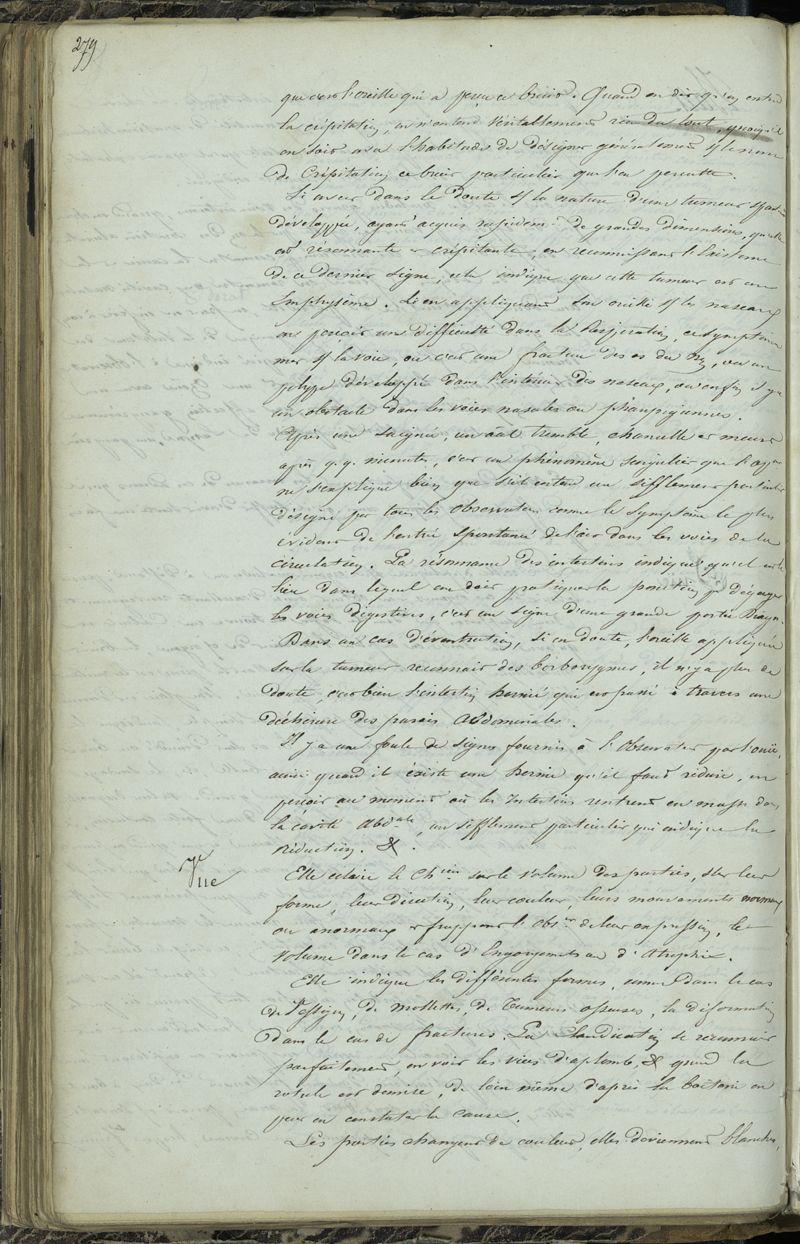 279
que c'est l'oreille qui a perçu ce bruit. Quand on dit qu'on entend
la crépitation, on n'entend véritablement rien du tout, quoiqu'
on soit dans l'habitude de désigner généralement sous le nom
de Crépitation ce bruit particulier que l'on perçoit.
Si avec dans le doute sur la nature d'une tumeur
développée, ayant acquis rapidement de grandes dimensions, qu'elle
est résonnante et crépitante, en reconnaissant l'existence
de ce dernier signe, cela indique que cette tumeur est un
Emphysème. Si en appliquant son oreille sur les naseaux
on perçoit une difficulté dans la Respiration, ce symptôme
met sur la voie, ou c'est une fracture des os du nez, ou un
polype développé dans l'intérieur des naseaux, ou enfin il y a
un obstacle dans les voies nasales ou pharyngiennes.
Après une saignée, un anal tremble, chancelle et meurt
après q.q. minutes, c'est un phénomène singulier que l'
ne s'explique bien que s'il entend un sifflement particulier
désigné par tous les observateurs comme le symptôme le plus
évident de l'entrée spontanée de l'air dans les voies de la
circulation. La résonnance des intestins indique qu'il est le
lieu dans lequel on doit pratiquer la ponction pr dégager
les voies digestives, c'est un signe d'une grande portée Diagn.
Dans un cas d'éventration, si on doute, l'oreille appliquée
sur la tumeur reconnait des borborygmes, il n'y a plus de
doute, c'est bien l'intestin hernié qui est passé à travers une
déchirure des parois Abdominales.
Il y a une foule de signes fournis à l'Observateur par l'ouïe,
ainsi quand il existe une hernie qu'il faut réduire, on
perçoit au moment où les Intestins rentrent en masse dans
la cavité Abdale, un sifflement particulier qui indique la
Réduction. &.
Vue
Elle éclaire le Chien sur le Volume des parties, sur leur
forme, leur direction, leur couleur, leurs mouvements normaux
ou anormaux et frappent l'Obser de leur expression, le
Volume dans le cas d'Engorgement ou d'Atrophie.
Elle indique les différentes formes, comme dans le cas
de Vessigon, de Mollettes, de Tumeurs osseuses, la déformation
dans le cas de fractures. La Claudication se reconnait
parfaitement, on voit les vices d'aplomb, & quand la
rotule est démise, de loin même d'après la boiterie on
peut en constater la cause.
Les parties changent de couleur, elles deviennent blanches,